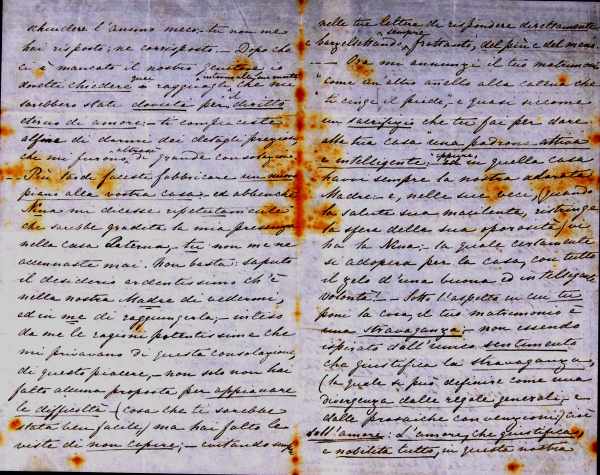 schiudere l'animo meco - tu non me
hai risposto, ne corrisposto. - Dopo che
ci è mancato il nostro Genitore io
dovetti chiedere quei ragguagli, che me
sarebbero stati dovuti per diritto
d'amore - ti compiacesti
alfine di darmi dei dettagli preziosi
che mi furono, di grande consolazione
- Più tardi faceste fabbricare un nuovo
piano alla vostra casa - ed abbenchè
Nina mi dicesse ripetutamente
che sarebbe gradita la mia presenza
nella casa Paterna, tu non me ne
accennaste mai. Non basta: saputo
il desiderio ardentissimo ch'è
nella nostra Madre di vedermi,
ed in me di raggiungerla, - inteso
da me le ragioni potentissime che
mi privavano di questa consolazione,
di questo piacere, - non solo non hai
fatto alcuna proposta per appianare
le difficoltà (cosa che ti sarebbe
stata ben facile) ma hai fatto le
viste di non capire; - evitando
nelle tue lettere di rispondere direttamente
sempre
barzellettando, del più e del meno.
- Ora mi annunzi il tuo matrimonio
"come un altro anello alla catena che
"ti cinge il piede," e quasi siccome
un sacrifizio che tu fai per dare
alla tua casa "una padrona attiva
e intelligente; eppure, in quella casa
havvi sempre la nostra adorata
Madre: e, nelle sue veci, (quando
la salute sua macilente, restringa
la sfera della sua operosità) vi
ha la Nina; - la quale certamente
si adopera per la casa, con tutto
il zelo d'una buona ed intelligente
volontà! - Sotto l'aspetto in cui tu
poni la cosa, il tuo matrimonio è
una stravaganza; - non essendo
ispirato dall'unico sentimento
che giustifica la stravaganza,
(la quale si può definire come una
divergenza dalle regole generali, e
dalle prosaiche convenzioni) cioè
dall'amore: L'amore, che giustifica,
e nobilita tutto, in questa nostra